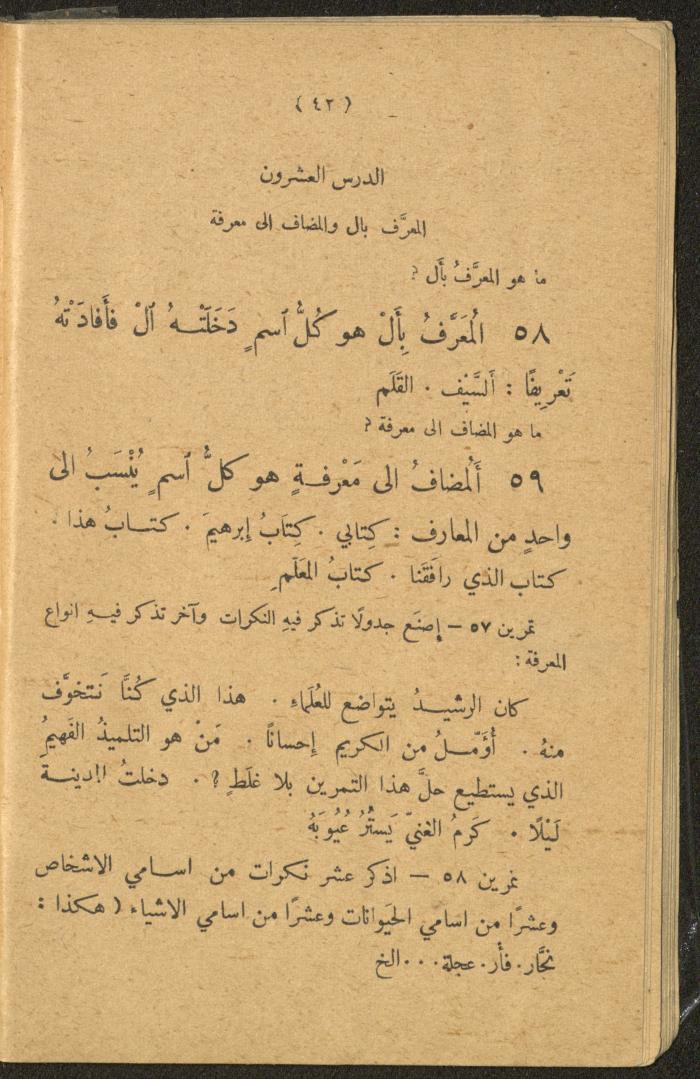 ( ٤٢ )
الدرس العشرون
المعرَّف بال والمضاف الى معرفة
ما هو المعرَّفُ بأَل ؟
٥٨ الْمُعَرَّفُ بِأَلْ هو كُلُّ ٱسمٍ دَخَلَتْــهُ ٱلْ فأَفادَتْهُ
تَعْرِيفًا : أَلسَّيْف . القَلَم
ما هو المضاف الى معرفة ؟
٥٩ أَلْمُضافُ الى مَعْرِفــةٍ هو كلُّ ٱسمٍ يُنْسَبُ الى
واحدٍ من المعارف : كِتابي . كِتَابُ إبرهيمَ . كتــابُ هذا .
كتاب الذي رافَقَنَا . كتابُ المعَلّمِ
تمرين ٥٧ – إِصنَع جدولًا تذكر فيهِ النكرات وآخر تذكر فيــهِ انواع
المعرفة :
كان الرشيــدُ يتواضع للعُلَماءِ . هذا الذي كُنَّا نَتخوَّف
منهُ . أُؤَمّــلُ من الكريم إِحسانًا . مَنْ هو التلميذُ الفَهيمُ
الذي يستطيع حلَّ هذا التمرين بلا غلَطٍ ؟ . دخلتُ المدينــةَ
لَيْلًا . كَرمُ الغنيّ يَستُرُ عُيُوبَهُ
تمرين ٥٨ – اذكر عشر نكرات من اسـامي الاشخاص
وعشرًا من اسامي الحيَوانات وعشرًا من اسامي الاشياء ( هكذا :
نجَّار . فأْر . عجلة . . . الخ